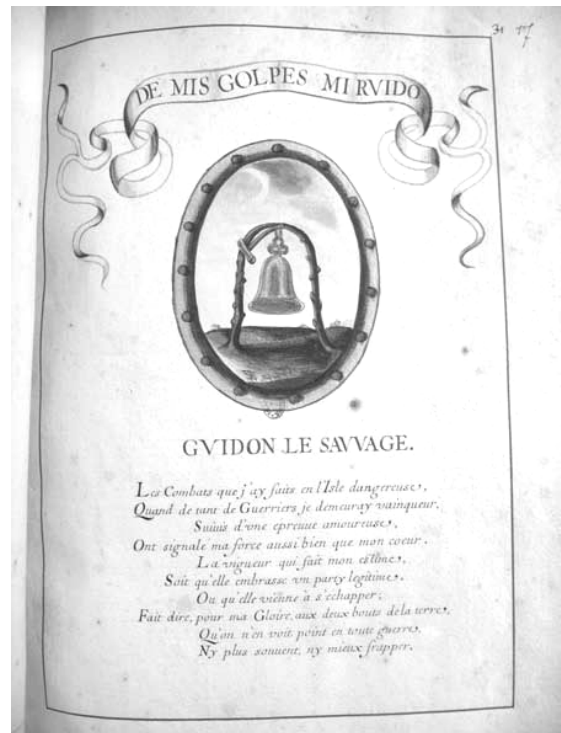 31
DE MIS GOLPES MI RVIDO
GVIDON LE SAVVAGE.
Les Combats que j'ay faits en l'Isle dangereuse,
Quand de tant de Guerriers je demeuray vainqueur,
Suiuis d'vne epreuue amoureuse,
Ont signale ma force aussi bien que mon coeur.
La vigueur qui fait mon estime,
Soit qu'elle embrasse vn party legitime,
Ou qu'elle vienne à s'echapper,
Fait dire, pour ma Gloire, aux deux bouts de la terre,
Qu'on n'en voit point en toute guerre,
Ny plus souuent, ny mieux frapper.